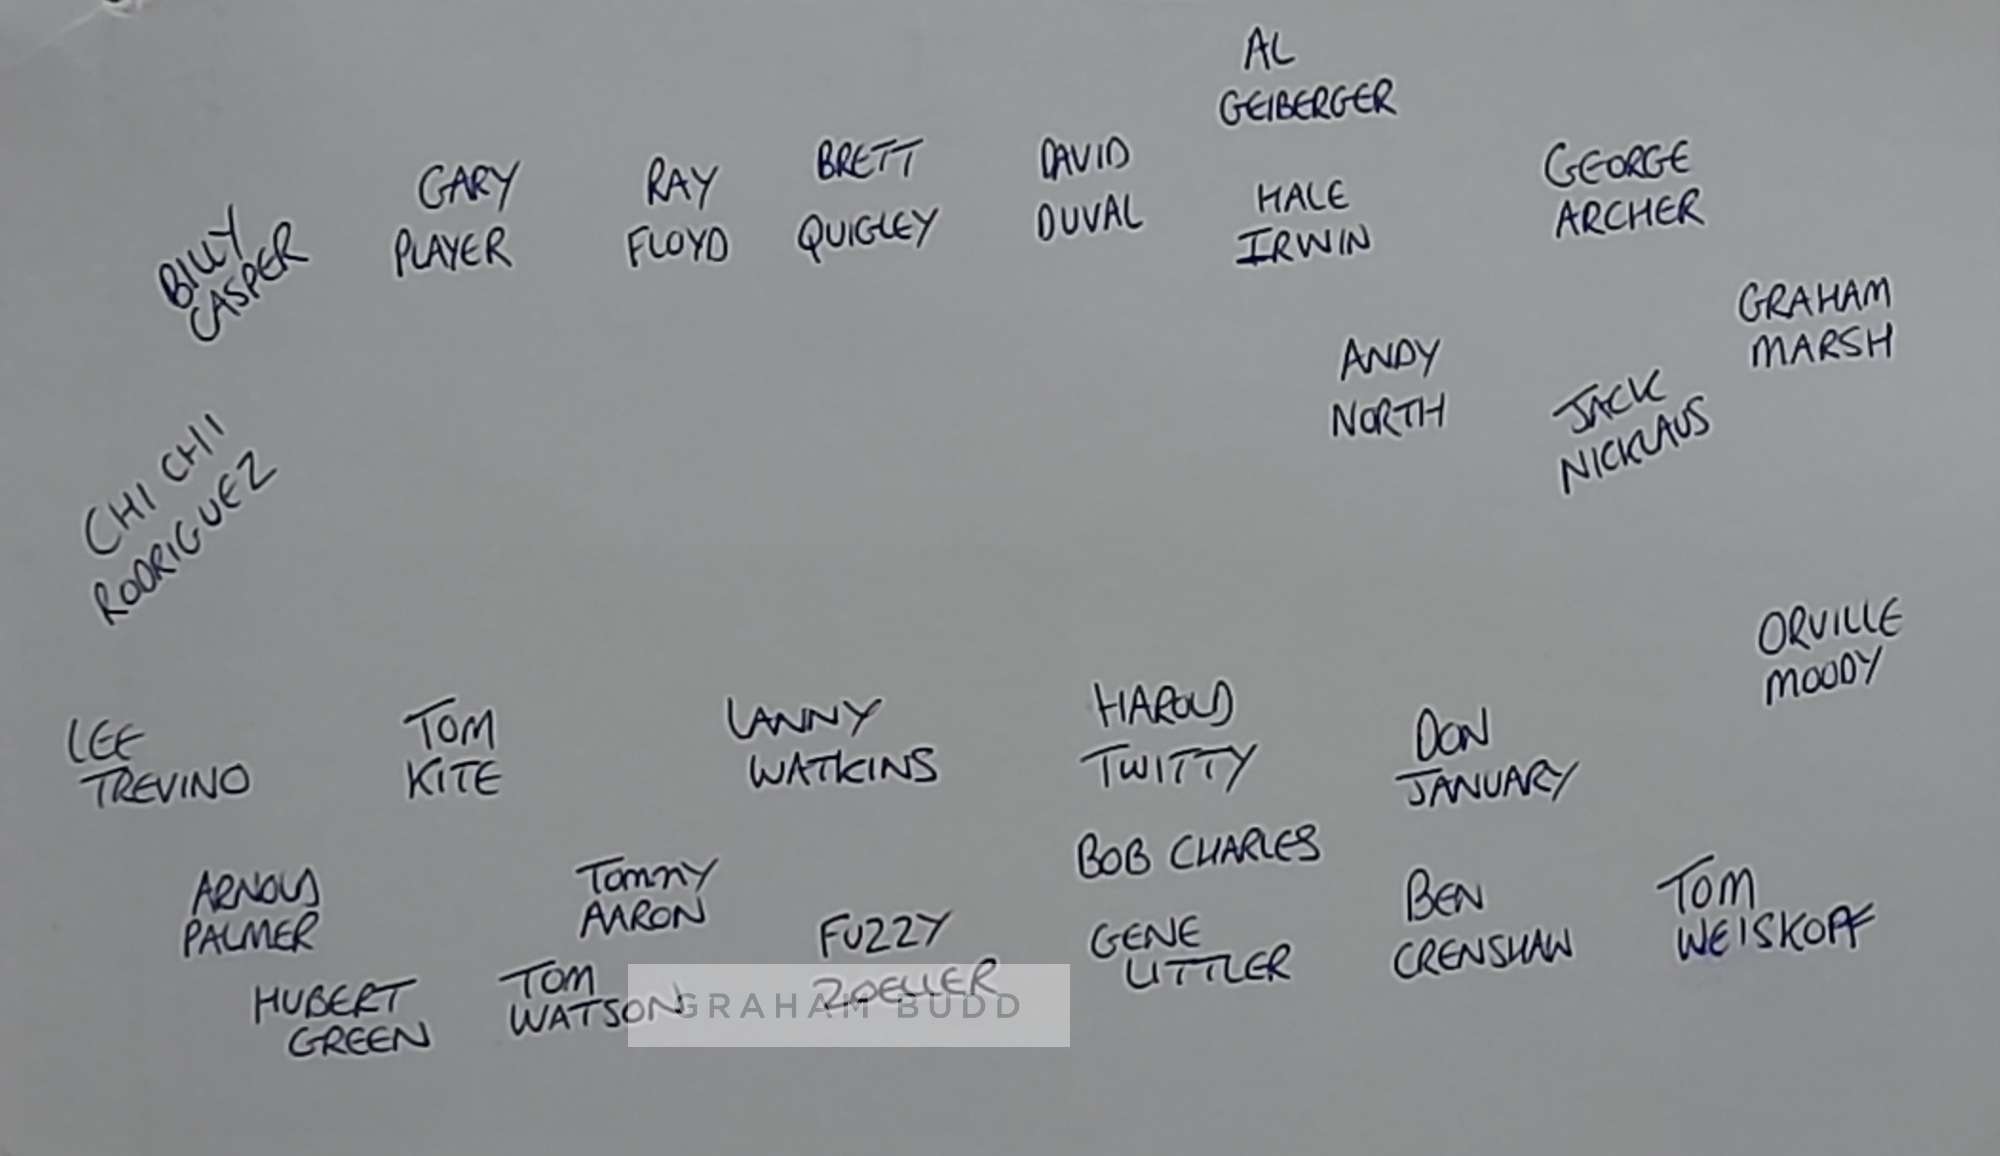 AL
GEIBERGER
BILLY
CASPER
GARY
PLAYER
RAY
FLOYD
BRETT
QUIGLEY
DAVID
DUVAL
HALE
IRWIN
GEORGE
ARCHER
GRAHAM
MARSH
ANDY
NORTH
JACK
NICKLAUS
CHI CHI
RODRIGUEZ
ORVILLE
MOODY
LEE
TREVINO
TOM
KITE
LANNY
WATKINS
HAROLD
TWITTY
DON
JANUARY
BOB CHARLES
ARNOLD
PALMER
TOMMY
AARON
FUZZY
ZOELLER
GENE
LITTLER
BEN
CRENSHAW
TOM
WEISKOPF
HUBERT
GREEN
TOM
WATSON
GRAHAM BUDD